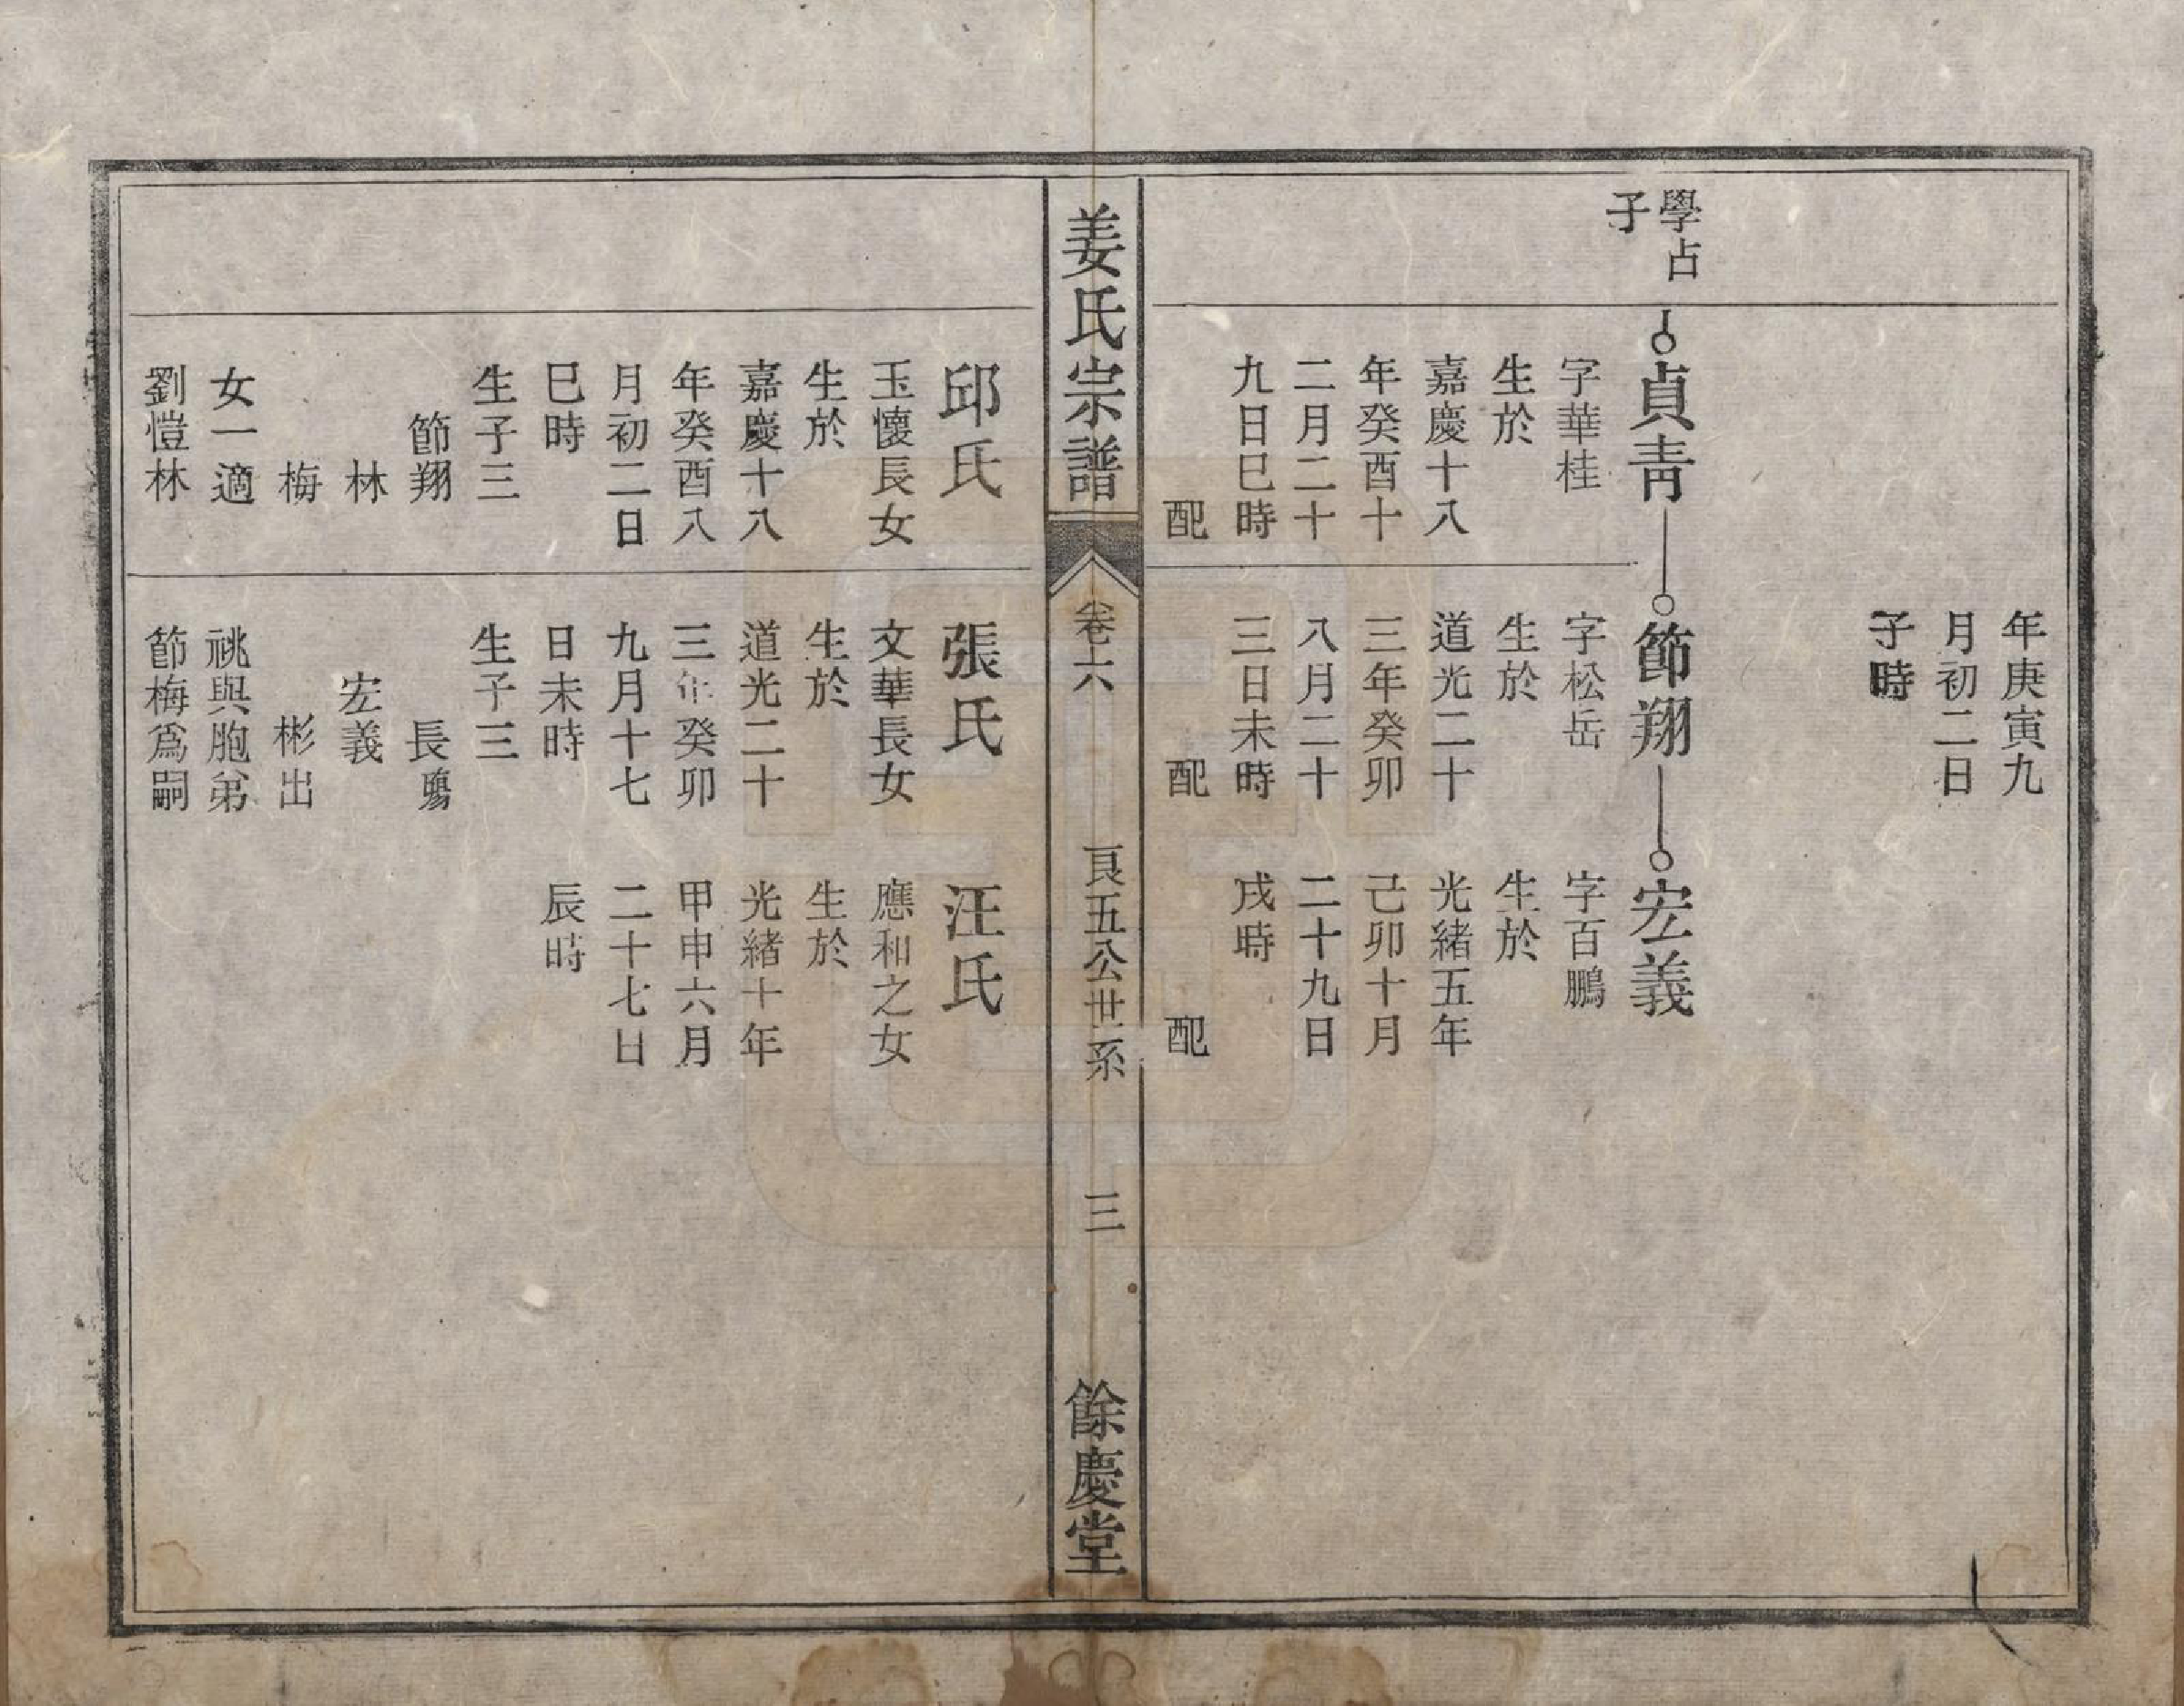 年庚寅九
月初二日
子時
學占
子
貞靑
字華桂
生於
嘉慶十八
年癸酉十
二月二十
九日巳時
配
節翔
字松岳
生於
道光二十
三年癸卯
八月二十
三日未時
配
宏義
字百鵬
生於
光緒五年
己卯十月
二十九日
戌時
配
姜氏宗譜
卷六
良五公世系
三
餘慶堂
邱氏
玉懷長女
生於
嘉慶十八
年癸酉八
月初二日
巳時
生子三
節翔
林
梅
女一適
劉愷林
張氏
文華長女
生於
道光二十
三年癸卯
九月十七
日未時
生子三
長殤
宏義
彬出
祧與胞弟
節梅爲嗣
汪氏
應和之女
生於
光緒十年
甲申六月
二十七日
辰時